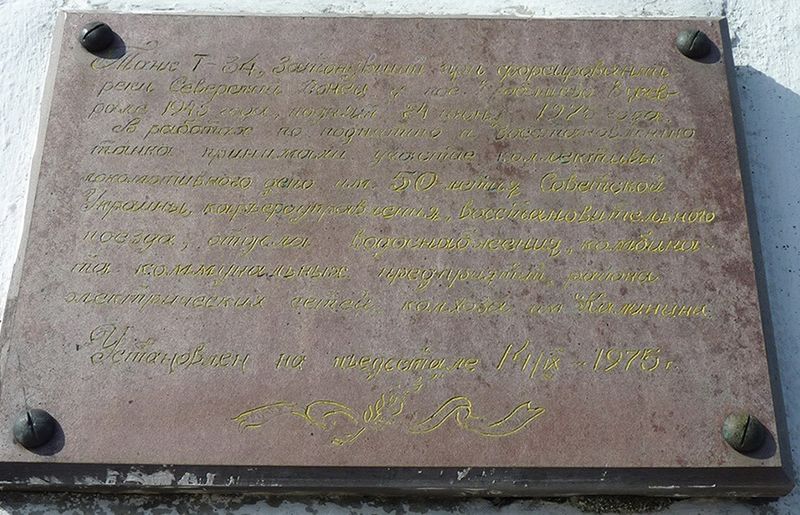 Танк Т-34, затонувший при форсировании
реки Северский Донец у пос. в фев-
рале 1943 года, поднят 24 июня 1975 года.
В работах по поднятию и восстановлению
танка принимали участие коллективы:
локомотивного депо им. 50-летия Советской
Украины, карьероуправления, восстановительного
поезда, отдела водоснабжения, комбина-
та коммунальных предприятий, района
электрических сетей, колхоза им. Калинина.
Установлен на пьедестале 1975 г.